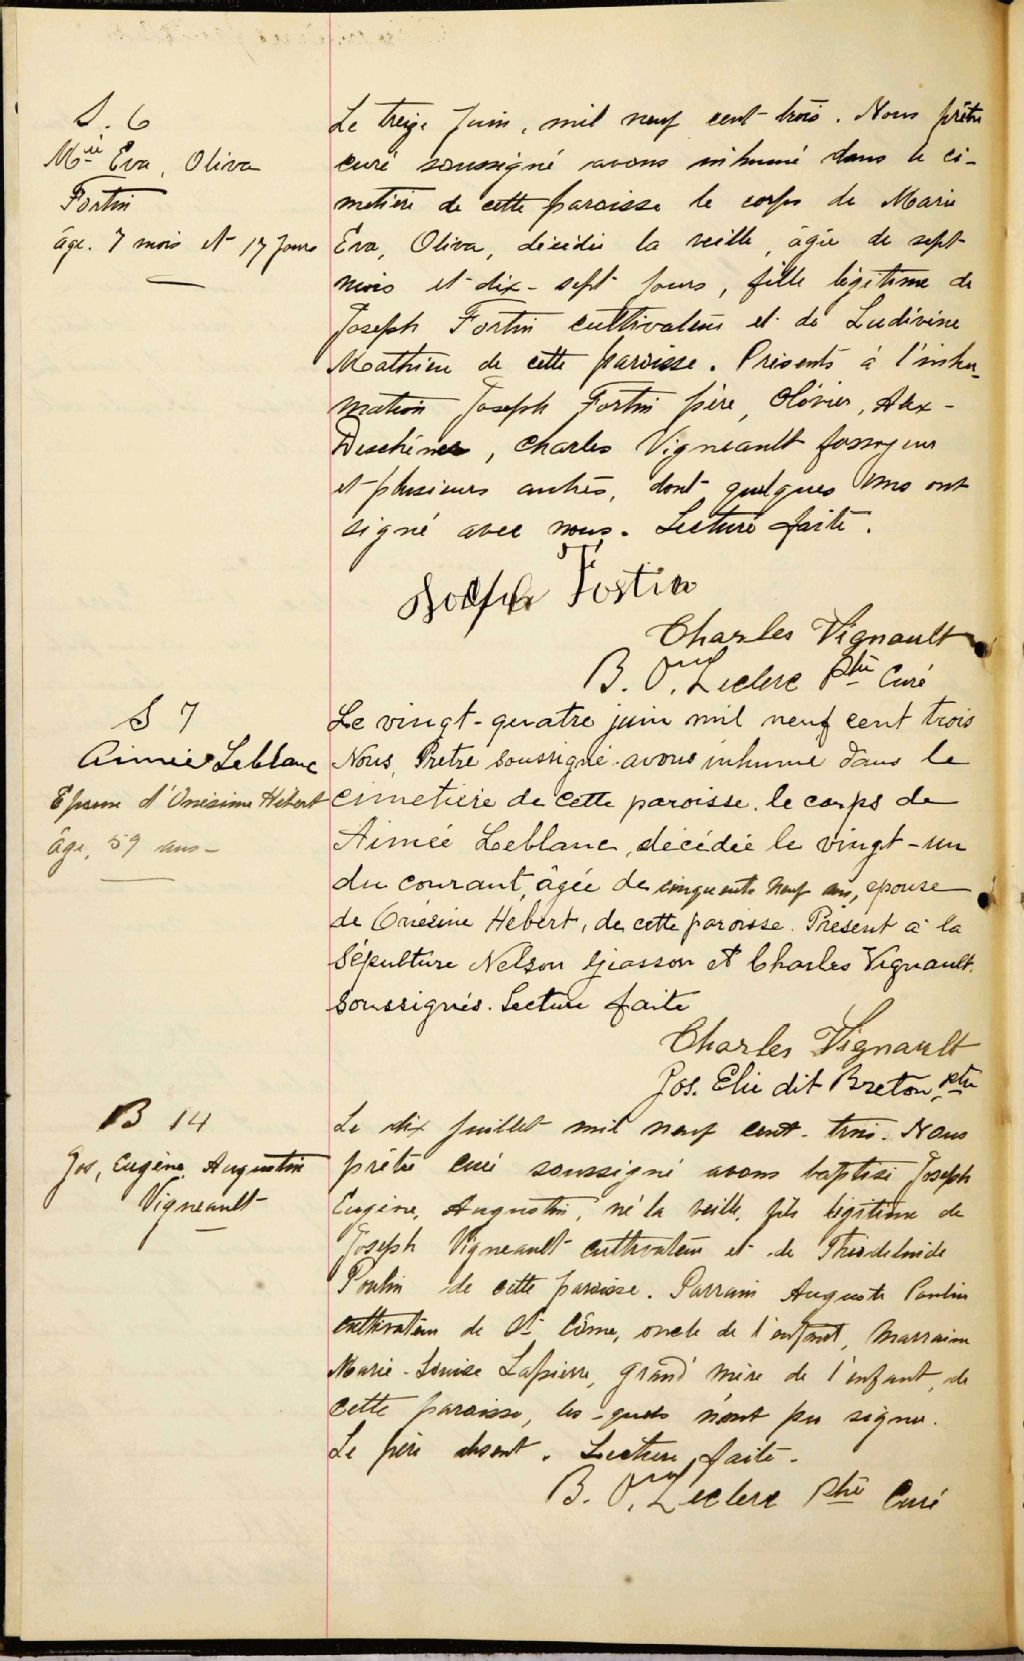 S. 6
Mrie Eva, Oliva
Fortin
âge. 7 mois et 17 Jours
Le treize Juin, mil neuf cent trois. Nous prêtre
curé soussigné avons inhumé dans le ci-
metière de cette paroisse le corps de Marie
Eva, Oliva, décédée la veille, âgée de sept
mois et dix-sept jours, fille légitime de
Joseph Fortin cultivateur et de Ludivine
Mathieu de cette paroisse. Présents à l'inhu-
mation Joseph Fortin père, Olivier, Alex-
Deschènes, Charles Vigneault fossoyeur
et plusieurs autres, dont quelques uns ont
signé avec nous. Lecture faite.
Joseph Fortin
Charles Vignault
B. O. Leclerc Ptre Curé
S 7
Aimée Leblanc
Epouse d'Onésime Hébert
âge, 59 ans-
Le vingt-quatre juin mil neuf cent trois
Nous, Prêtre soussigné avons inhumé dans le
cimetière de cette paroisse le corps de
Aimée Leblanc, décédée le vingt-un
du courant, âgée de cinquante neuf ans, epouse
de Onésime Hébert, de cette paroisse. Présent à la
Sépulture Nelson Giasson et Charles Vignault,
soussignés. Lecture faite
Charles Vignault
Jos. Elie dit Breton, Ptre
B 14
Jos, Eugène, Augustin
Vigneault
Le dix Juillet mil neuf cent-trois. Nous
prêtre curé soussigné avons baptisé Joseph
Eugène, Augustin, né la veille, fils légitime de
Joseph Vigneault cultivateur et de
Poulin de cette paroisse. Parrain Auguste Poulin
cultivateur de St Côme, oncle de l'enfant, Marraine
Marie-Louise Lapierre, grand'mère de l'enfant, de
cette paroisse, les-quels n'ont pu signer.
Le père absent. Lecture faite.
B. O. Leclerc Ptre Curé